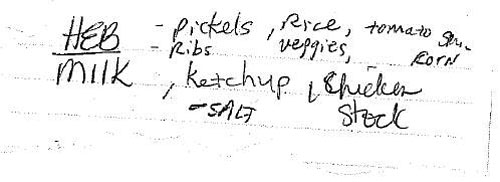 HEB - Pickels, Rice, tomato
- Ribs veggies, CORN
Milk, ketchup, Chicken
- SALT Stock